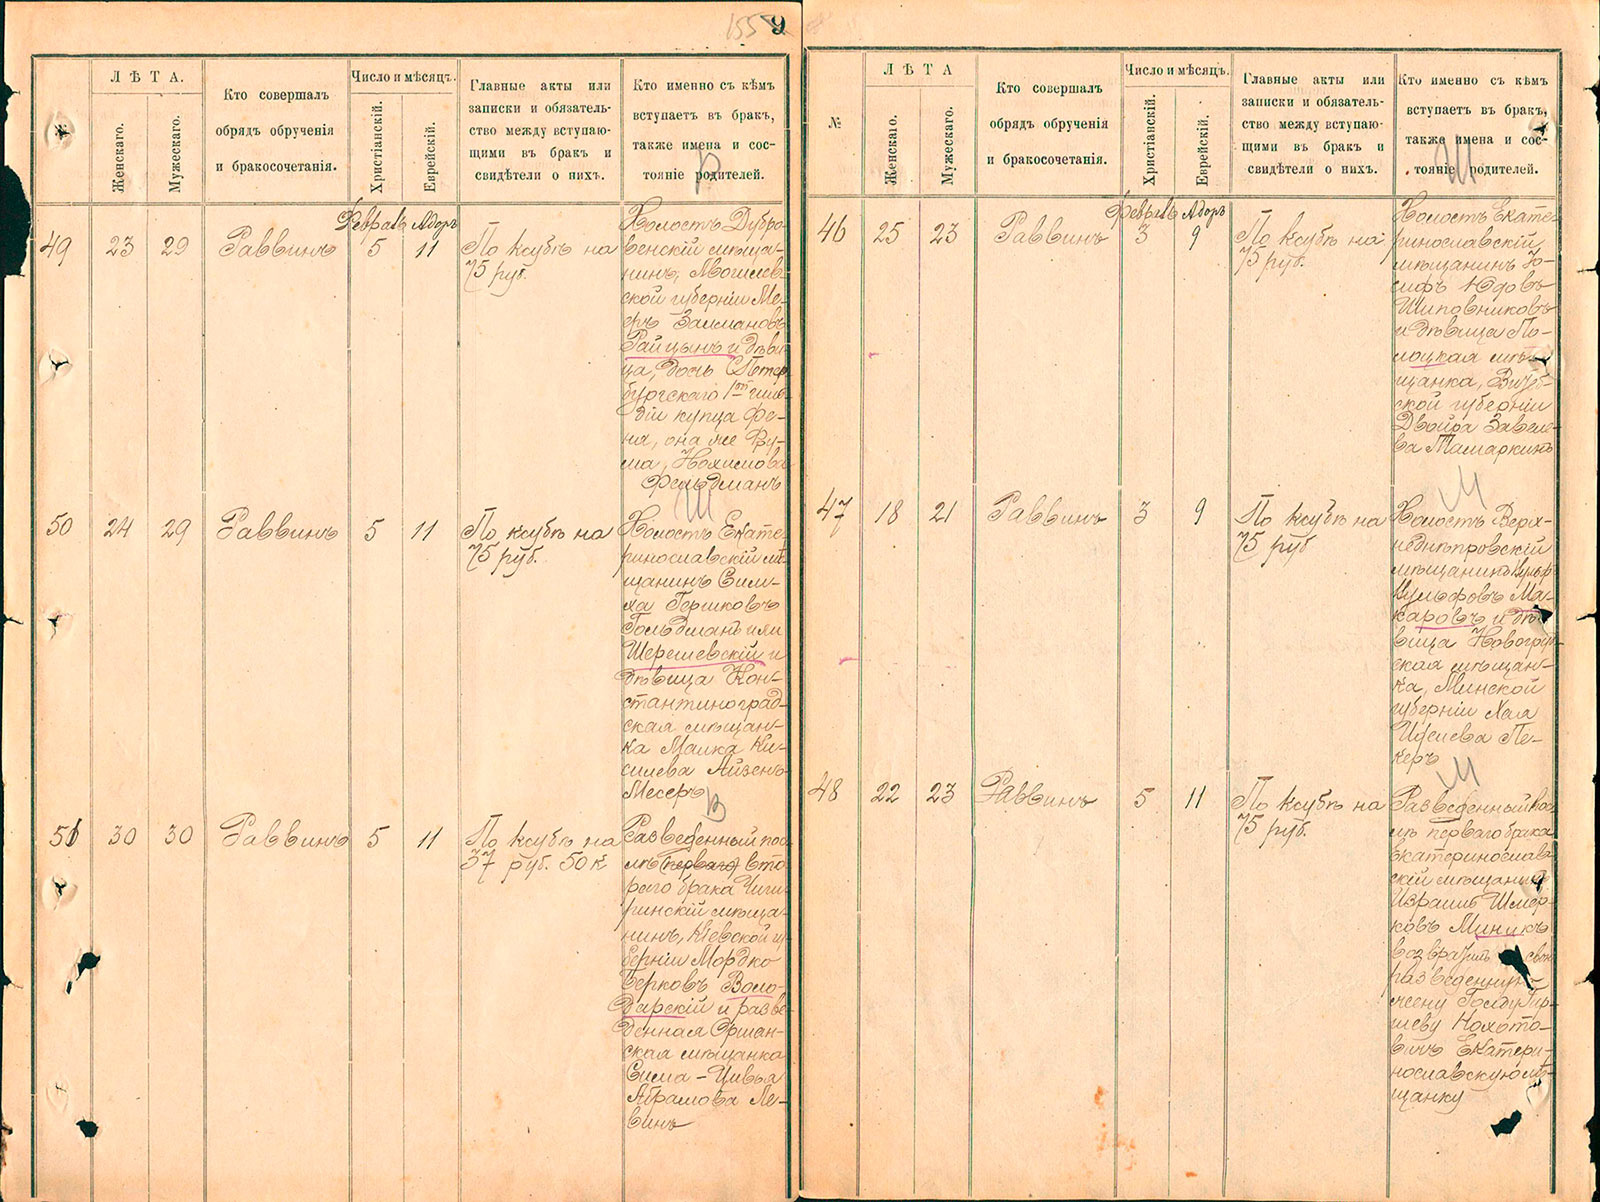 155 9
ЛѢТА.
Женскаго.
Мужескаго.
Кто совершалъ
обрядъ обрученія
и бракосочетанія.
Число и мѣсяцъ.
Христіанскій.
Еврейскій.
Главные акты или
записки и обязатель-
ство между вступаю-
щими въ бракъ и
свидѣтели о нихъ.
Кто именно съ кѣмъ
вступаетъ въ бракъ,
также имена и сос-
тояніе родителей.
Р
Февраль Адоръ
49 23 29 Раввинъ 5 11
По ксубѣ на
75 руб.
Холостъ Дубро-
венскій мѣща-
нинъ, Могилев-
ской губерніи Ме-
еръ Залмановъ
Райцынъ и дѣви-
ца, дочь СПетер-
бургскаго 1ой гиль-
діи купца Фе-
ня, она же Фру-
ма, Нохимова
Фельдманъ
Ш
50 24 29 Раввинъ 5 11
По ксубѣ на
75 руб.
Холостъ Екате-
ринославскій мѣ-
щанинъ Сим-
ха Гершковъ
Гольдманъ или
Шерешевскій и
дѣвица Кон-
стантиноград-
ская мѣщан-
ка Малка Ки-
силева Айзенъ-
Месеръ
В
51 30 30 Раввинъ 5 11
По ксубѣ на
37 руб. 50 к
Разведенный пос-
лѣ (перваго) вто-
раго брака Чиги-
ринскій мѣща-
нинъ, Кіевской гу-
берніи Мордко
Берковъ Воло-
дарскій и разве-
денная Оршан-
ская мѣщанка
Сима-Цивья
Абрамова Ле-
винъ
№
ЛѢТА
Женскаго.
Мужескаго.
Кто совершалъ
обрядъ обрученія
и бракосочетанія.
Число и мѣсяцъ.
Христіанскій.
Еврейскій.
Главные акты или
записки и обязатель-
ство между вступаю-
щими въ бракъ и
свидѣтели о нихъ.
Кто именно съ кѣмъ
вступаетъ въ бракъ,
также имена и сос-
тояніе родителей.
Ш
Февраль Адоръ
46 25 23 Раввинъ 3 9
По ксубѣ на
75 руб.
Холостъ Екате-
ринославскій
мѣщанинъ Іо-
сифъ Юдовъ
Шиповниковъ
и дѣвица По-
лоцкая мѣ-
щанка, Витеб-
ской губерніи
Двойра Завеле-
ва Тамаркинъ
М
47 18 21 Раввинъ 3 9
По ксубѣ на
75 руб
Холостъ Верх-
недпѣпровскій
мѣщанинъ Вульфъ
Вульфовъ Ма-
каровъ и дѣ-
вица Новогруд-
ская мѣщан-
ка, Минской
губерніи Хая
Ицелева Пе-
керъ
М
48 22 23 Раввинъ 5 11
По ксубѣ на
75 руб.
Разведенный пос-
лѣ перваго брака
Екатеринослав-
скій мѣщанинъ
Израиль Шмер-
ковъ Миникъ
возвратилъ свою
разведенную
жену Голду Гир-
шеву Нохото-
вичъ Екатери-
нославскую мѣ-
щанку